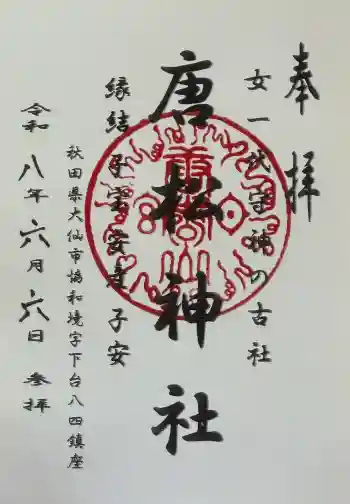 奉拝
女一代守神の古社
唐松神社
縁結子宝安産子安
秋田県大仙市協和境字下台八四鎮座
令和八年六月六日 参拝